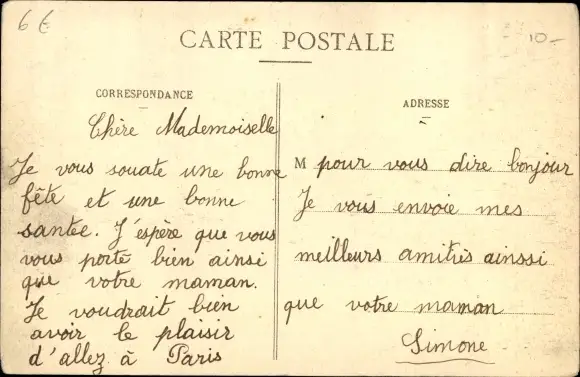 6 €
10-
CARTE POSTALE
CORRESPONDANCE
Chère Mademoiselle
Je vous souate une bonne
fête et une bonne
santée. J'espère que vous
vous porté bien ainsi
que votre maman.
Je voudrait bien
avoir le plaisir
d'allez à Paris
ADRESSE
M pour vous dire bonjour
Je vous envoie mes
meilleurs amitiès ainssi
que votre maman
Simone